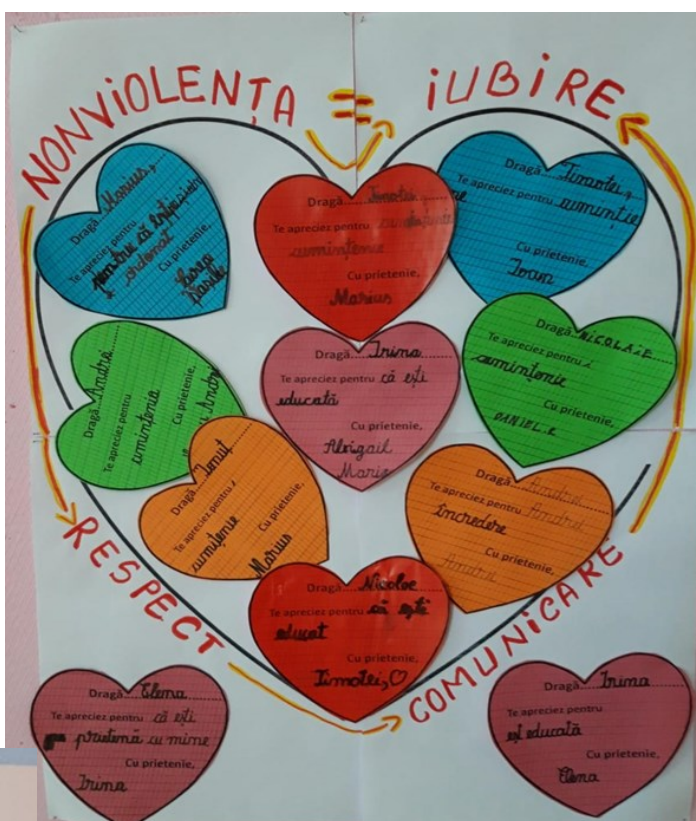 NONVIOLENȚA = IUBIRE
Dragă Marius,
Te apreciez pentru
pentru că
ordonat
Cu prietenie,
Dragă Timotei,
Te apreciez pentru
cumințenie
Cu prietenie,
Marius
Dragă Timotei,
Te apreciez pentru cumințție
Cu prietenie,
Ioan
Dragă Andrei
Te apreciez pentru
cumințenia
Cu prietenie,
Andrei
Dragă Irina
Te apreciez pentru că ești
educată
Cu prietenie,
Abigail
Maria
Dragă NICOLAIE
Te apreciez pentru
cumințenie
Cu prietenie,
DANIEL.R
Dragă Ionuț
Te apreciez pentru
cumițenie
Cu prietenie,
Marius
Dragă Andrei
Te apreciez pentru Andrei
încredere
Cu prietenie,
Andrei
RESPECT
COMUNICARE
Dragă Nicolae
Te apreciez pentru că ești
educat
Cu prietenie,
Timotei,♡
Dragă Elena
Te apreciez pentru că ești
prietenă cu mine
Cu prietenie,
Irina
Dragă Irina
Te apreciez pentru
eșt educată
Cu prietenie,
Elena